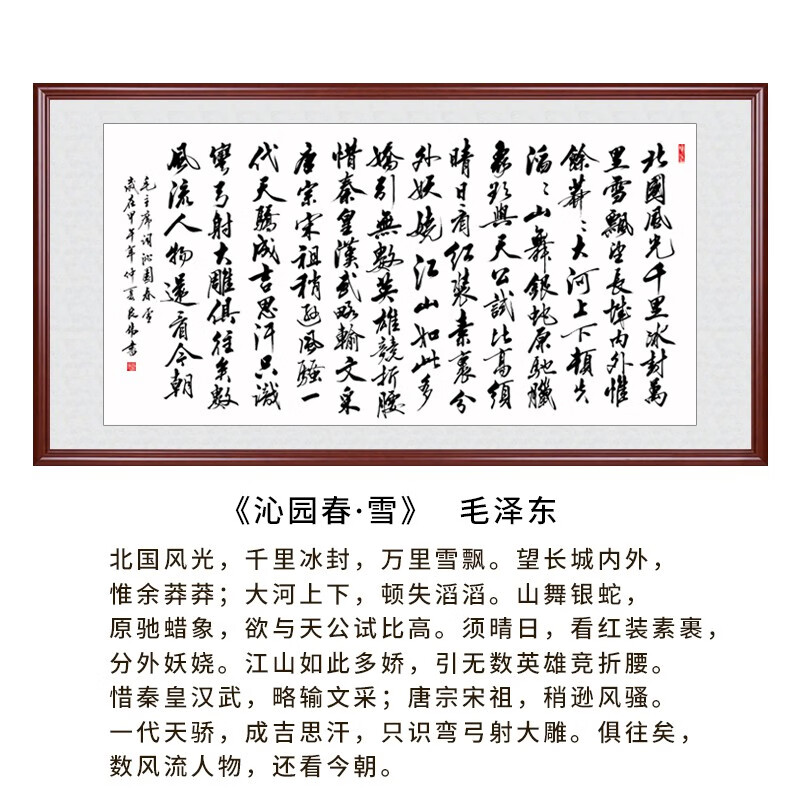 北國風光千里冰封萬
里雪飄望長城内外惟
餘莽〻大河上下頓失
滔〻山舞銀蛇原馳臘
象欲與天公試比高須
晴日看紅裝素裹分
外妖嬈江山如此多
嬌引無數英雄競折腰
惜秦皇漢武略輸文采
唐宗宋祖稍遜風騷一
代天驕成吉思汗只識
彎弓射大雕俱往矣數
風流人物還看今朝
毛主席詞沁園春雪
歲在甲午年仲夏書
《沁园春·雪》 毛泽东
北国风光，千里冰封，万里雪飘。望长城内外，
惟余莽莽；大河上下，顿失滔滔。山舞银蛇，
原驰蜡象，欲与天公试比高。须晴日，看红装素裹，
分外妖娆。江山如此多娇，引无数英雄竞折腰。
惜秦皇汉武，略输文采；唐宗宋祖，稍逊风骚。
一代天骄，成吉思汗，只识弯弓射大雕。俱往矣，
数风流人物，还看今朝。